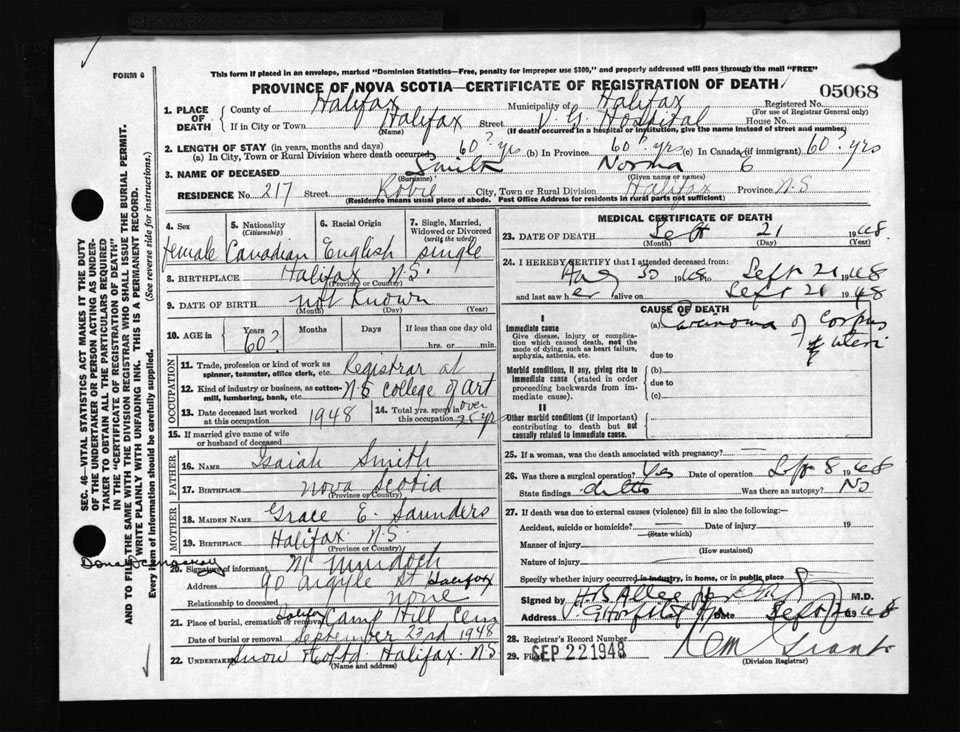 FORM 6
This form if placed in an envelope, marked "Dominion Statistics—Free, penalty for improper use $300," and properly addressed will pass through the mail "FREE"
PROVINCE OF NOVA SCOTIA—CERTIFICATE OF REGISTRATION OF DEATH
05068
1. PLACE OF DEATH
County of Halifax Municipality of Halifax Registered No.
(For use of Registrar General only)
If in City or Town Halifax Street V. G. Hospital House No.
(Name) (If death occurred in a hospital or institution, give the name instead of street and number)
2. LENGTH OF STAY (in years, months and days)
(a) In City, Town or Rural Division where death occurred 60? yrs (b) In Province 60? yrs (c) In Canada (if immigrant) 60 yrs
3. NAME OF DECEASED Smith Norma
(Surname) (Given name or names)
RESIDENCE No. 217 Street Robie City, Town or Rural Division Halifax Province N.S
(Residence means usual place of abode. Post Office Address for residents in rural parts not sufficient)
4. Sex female
5. Nationality (Citizenship) Canadian
6. Racial Origin English
7. Single, Married, Widowed or Divorced (write the word) single
8. BIRTHPLACE Halifax N.S.
(Province or Country)
9. DATE OF BIRTH not known
(Month) (Day) (Year)
10. AGE in Years 60? Months Days If less than one day old
hrs. or min.
OCCUPATION
11. Trade, profession or kind of work as spinner, teamster, office clerk, etc. Registrar at
12. Kind of industry or business, as cotton-mill, lumbering, bank, etc. N S College of Art
13. Date deceased last worked at this occupation 1948
14. Total yrs. spent in this occupation over 25 yrs
15. If married give name of wife or husband of deceased
FATHER
16. NAME Isaiah Smith
17. BIRTHPLACE Nova Scotia
(Province or Country)
MOTHER
18. MAIDEN NAME Grace E. Saunders
19. BIRTHPLACE Halifax N.S
(Province or Country)
20. Signature of informant M Murdoch
Address 90 Argyle St Halifax
Relationship to deceased none
21. Place of burial, cremation or removal Halifax Camp Hill Cem
Date of burial or removal September 23rd 1948
22. Undertaker Snow Halifax N.S
(Name and address)
MEDICAL CERTIFICATE OF DEATH
23. DATE OF DEATH Sept 21 1948
(Month) (Day) (Year)
24. I HEREBY CERTIFY that I attended deceased from:
Aug 30 1948 to Sept 21 1948
and last saw her alive on Sept 21 1948
CAUSE OF DEATH
I
Immediate cause
Give disease, injury or complication which caused death, not the mode of dying, such as heart failure, asphyxia, asthenia, etc.
(a) Carcinoma of corpus of uteri
due to
Morbid conditions, if any, giving rise to immediate cause (stated in order proceeding backwards from immediate cause).
(b)
due to
(c)
II
Other morbid conditions (if important) contributing to death but not causally related to immediate cause.
25. If a woman, was the death associated with pregnancy?
26. Was there a surgical operation? Yes Date of operation Sept 8 1948
State findings ditto Was there an autopsy? No
27. If death was due to external causes (violence) fill in also the following:—
Accident, suicide or homicide? Date of injury 19
(State which)
Manner of injury
(How sustained)
Nature of injury
Specify whether injury occurred in industry, in home, or in public place
Signed by H B Atlee M.D.
Address V. G Hospital Date Sept 1948
28. Registrar's Record Number
29. Filed SEP 22 1948
(Division Registrar)
SEC. 46—VITAL STATISTICS ACT MAKES IT THE DUTY OF THE UNDERTAKER OR PERSON ACTING AS UNDERTAKER TO OBTAIN ALL THE PARTICULARS REQUIRED IN THE "CERTIFICATE OF REGISTRATION OF DEATH" AND TO FILE THE SAME WITH THE DIVISION REGISTRAR WHO SHALL ISSUE THE BURIAL PERMIT.
WRITE PLAINLY WITH UNFADING INK. THIS IS A PERMANENT RECORD.
Every item of information should be carefully supplied. (See reverse side for instructions.)